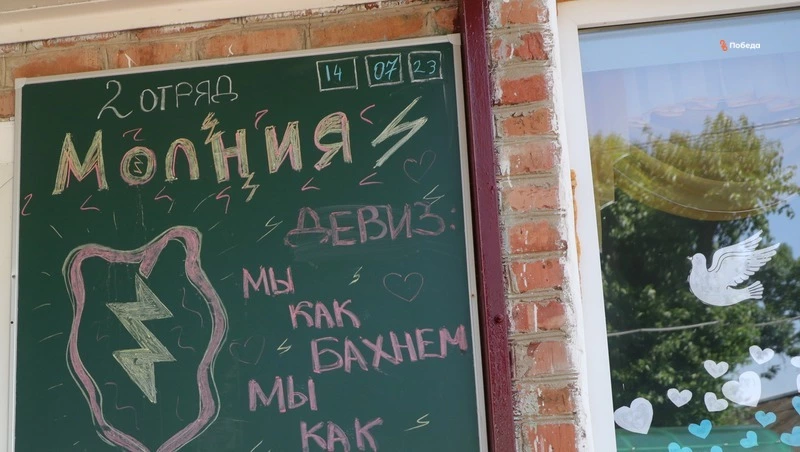 2 ОТРЯД
14 07 23
МОЛНИЯ
ДЕВИЗ:
МЫ
КАК
БАХНЕМ
МЫ
КАК
Победа